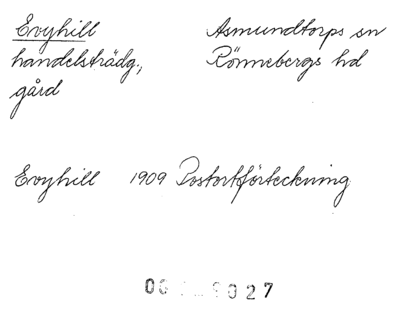 Evyhill Asmundtorps sn
handelsträdg., Rönnebergs hd
gård
Evyhill 1909 Postortförteckning
9027